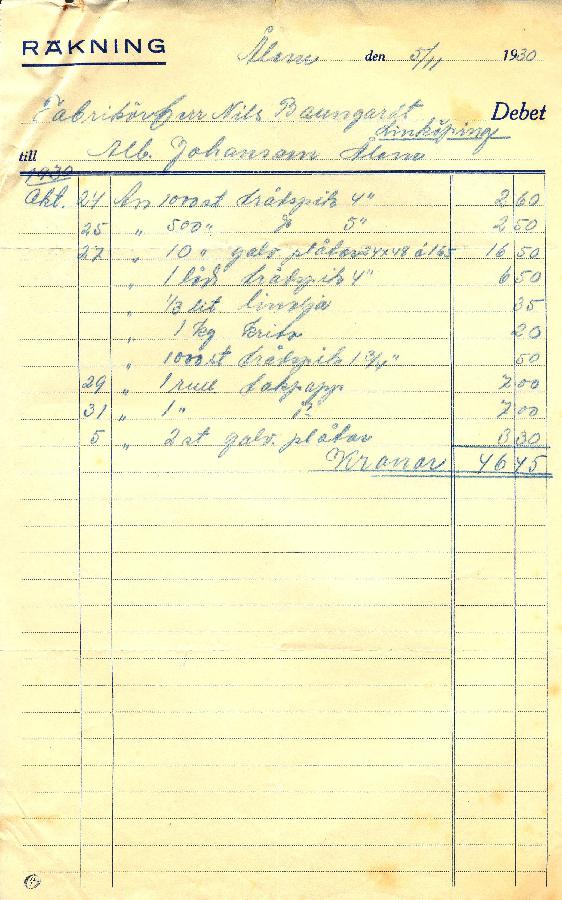 RÄKNING
Ålem den 5/11 1930
Fabrikör Herr Nils Baumgardt Debet
Linköping
till Alb. Johansson Ålem
1930
Okt. 24 An 1000 st trådspik 4" 2 60
25 " 500 " " 5" 2 50
27 " 10 " galv. plåtar 24x48 á 165 16 50
" 1 låd trådspik 4" 6 50
" 1/3 lit linolja 35
" 1 kg krita 20
" 1000 st trådspik 1 3/4" 50
29 " 1 rulle takpapp 7 00
31 " 1 " " 7 00
5 " 2 st galv. plåtar 3 30
Kronor 46 45